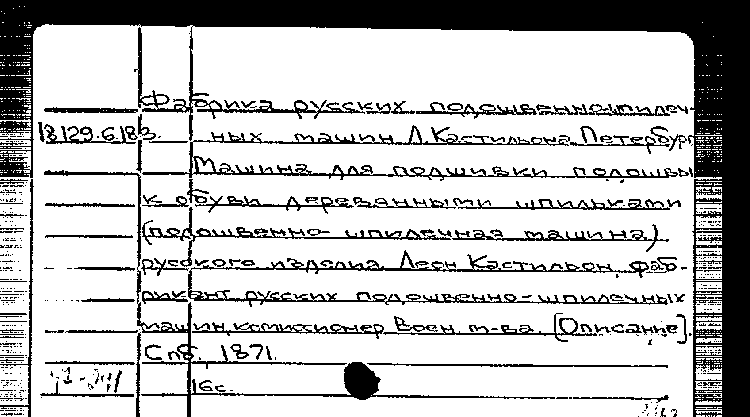 Фабрика русских подошвенно-шпилеч-
18.129.6.183. ных машин Л. Кастильона. Петербург
Машина для подшивки подошвы
к обуви деревянными шпильками
(подошвенно-шпилечная машина)
русского изделия Леон Кастильон, фаб-
рикант русских подошвенно-шпилечных
машин, комиссионер Воен. т-ва. [Описание].
Спб. 1871.
16с.